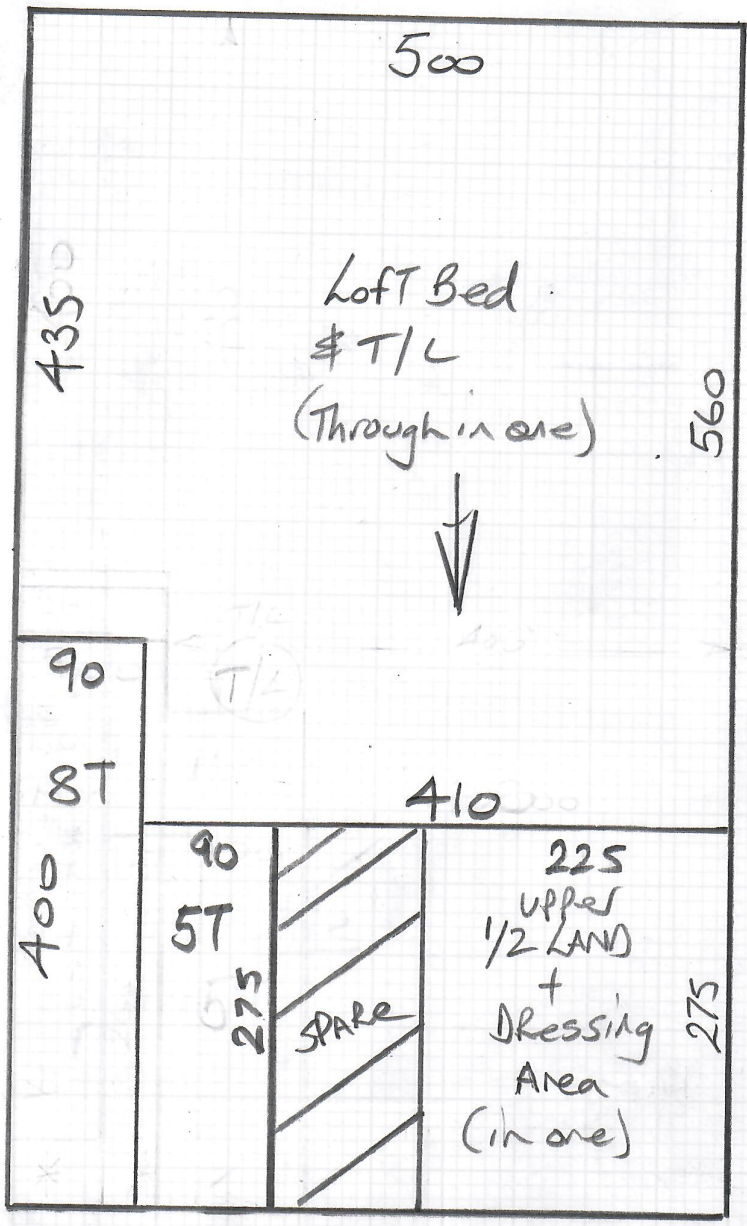 500
LofT Bed
& T/L
(Through in one)
435
560
90
T/L
8T
410
400
90
5T
275
SPARE
225
upper
1/2 LAND
+
DRessing
Area
(in one)
275